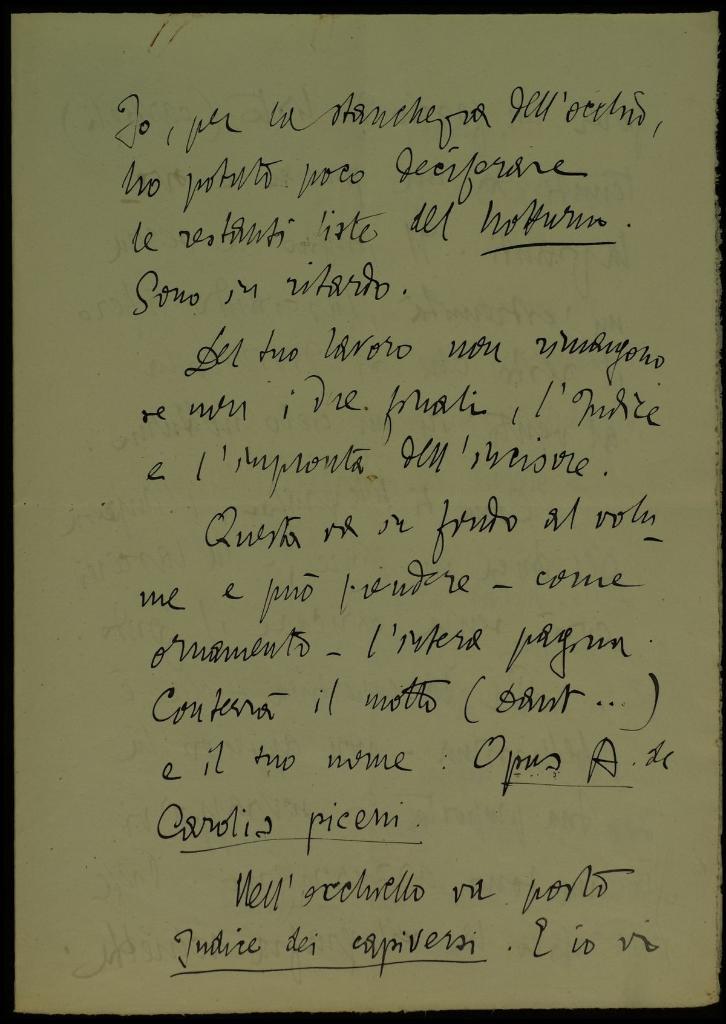 Io, per la stanchezza dell'occhio,
ho potuto poco decifrare
le restanti liste del Notturno.
Sono in ritardo.
Del tuo lavoro non rimangono
se non i tre finali, l'Indice
e l'impronta dell'incisore.
Questa va in fondo al volu-
me e può prendere – come
ornamento – l'intera pagina.
Conterrà il motto (Dant...)
e il tuo nome: Opus A. de
Carolis piceni.
Nell'occhiello va posto
Indice dei capiversi. E io vi